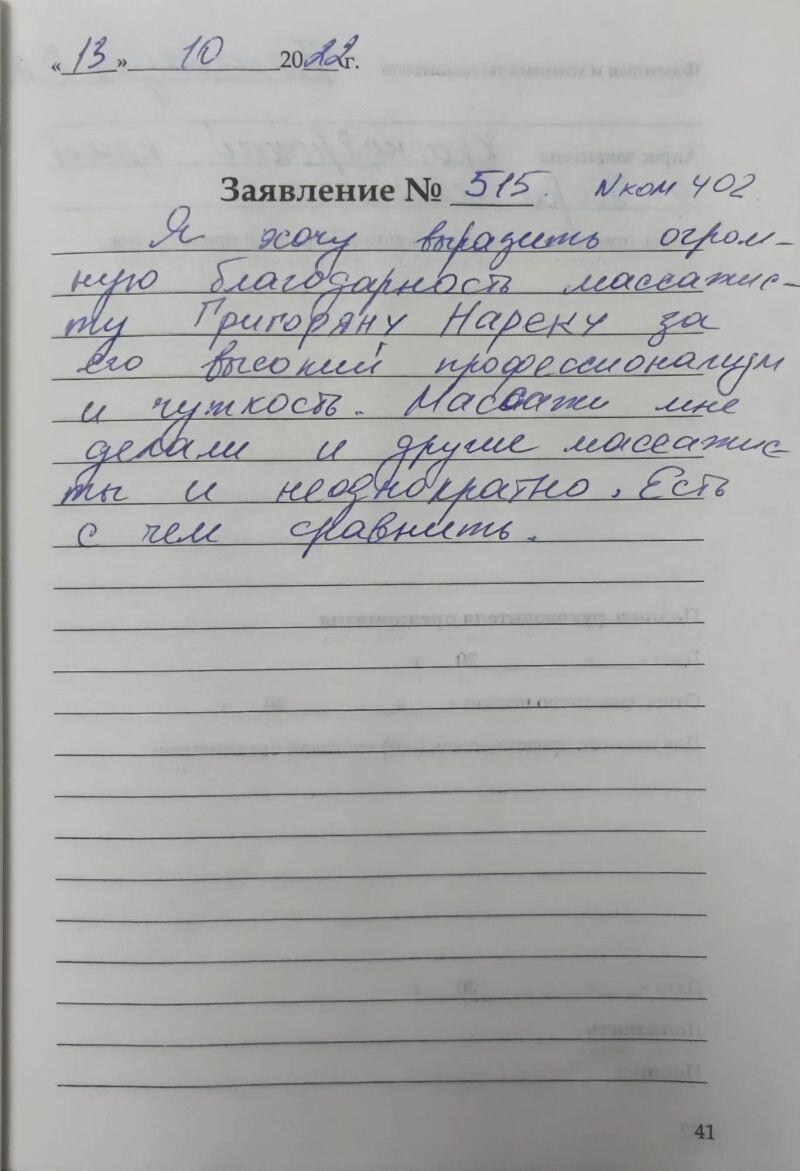 «13» 10 2022г.
Заявление № 515. N ком 402
Я хочу выразить огром-
ную благодарность массажис-
ту Григоряну Нареку за
его высокий профессионализм
и чуткость. Массажи мне
делали и другие массажис-
ты и неоднократно. Есть
с чем сравнить.
41